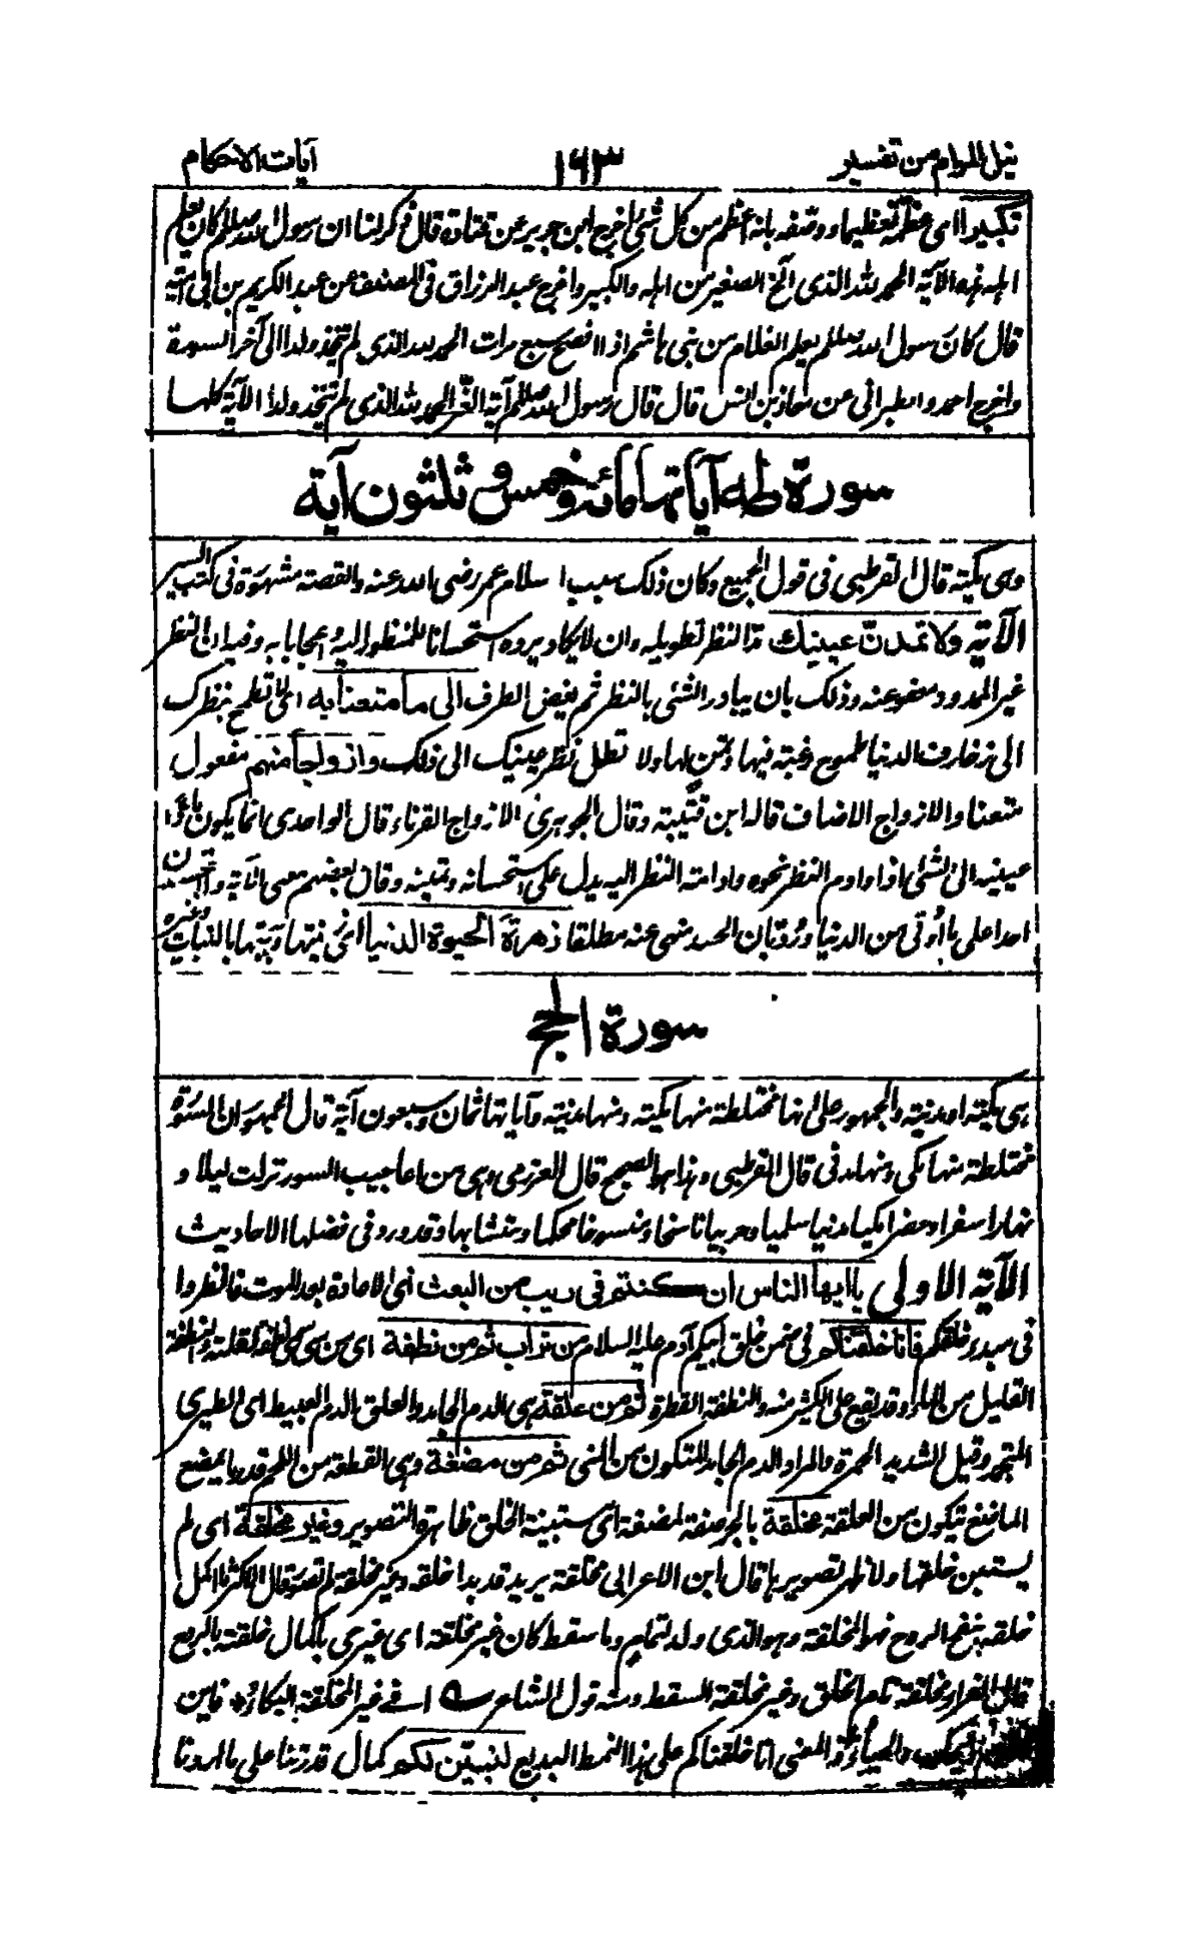 نيل المرام من تفسير ١٦٣ آيات الاحكام
تكبيرا اى عظمه تعظيما ووصفه بانه اعظم من كل شئ اخرج ابن جرير عن قتادة قال ذكر لنا ان رسول الله صلعم كان يعلم
اهله هذه الآية الحمد لله الذى الخ الصغير من اهله والكبير واخرج عبد الرزاق فى المصنف عن عبد الكريم بن ابى امية
قال كان رسول الله صلعم يعلم الغلام من بنى هاشم اذا افصح سبع مرات الحمد لله الذى لم يتخذ ولدا الى آخر السورة
واخرج احمد والطبرانى عن معاذ بن انس قال قال رسول الله صلعم آية العز الحمد لله الذى لم يتخذ ولدا الآية كلها
سورة طه آياتها مائة وخمس و ثلثون آية
وهى مكية قال القرطبى فى قول الجميع وكان ذلك سبب اسلام عمر رضى الله عنه والقصة مشهورة فى كتب السير
الآية ولا تمدن عينيك مد النظر تطويله وان لا يكاد يرده استحسانا للمنظور اليه واعجابا به وفيه ان النظر
غير الممدود معفو عنه وذلك بان يبادر الشئ بالنظر ثم يغض الطرف الى ما متعنا به اى لا تطمح بنظرك
الى زخارف الدنيا طموح رغبة فيها وتمن لها ولا تطل نظر عينيك الى ذلك وازواجا منهم مفعول
متعنا والازواج الاصناف قاله ابن قتيبة وقال الجوهرى الازواج القرناء قال الواحدى انما يكون مادا
عينيه الى الشئ اذا ادام النظر نحوه وادامة النظر اليه يدل على استحسانه وتمنيه وقال بعضهم معنى الآية ولا تحسدن
احدا على ما اوتى من الدنيا ورد بان الحسد منهى عنه مطلقا زهرة الحيوة الدنيا اى زينتها وبهجتها بالنبات وغيره
سورة الحج
هى مكية او مدنية والجمهور على انها مختلطة منها مكية ومنها مدنية وآياتها ثمان وسبعون آية قال الجمهور ان السورة
مختلطة منها مكى ومنها مدنى قال القرطبى وهذا هو الصحيح قال العزيزى وهى من اعاجيب السور نزلت ليلا و
نهارا سفرا وحضرا مكيا مدنيا سلميا وحربيا ناسخا ومنسوخا محكما ومتشابها وقد ورد فى فضلها الاحاديث
الآية الاولى يا ايها الناس ان كنتم فى ريب من البعث اى الاعادة بعد الموت فانظروا
فى مبدء خلقكم فانا خلقناكم فى ضمن خلق ابيكم آدم عليه السلام من تراب ثم من نطفة اى من منى سمى نطفة لقلته والنطفة
القليل من الماء وقد يقع على الكثير منه والنطفة القطرة ثم من علقة هى الدم الجامد والعلق الدم العبيط اى الطرى
المتجمد وقيل الشديد الحمرة والمراد الدم الجامد المتكون من المنى ثم من مضغة وهى القطعة من اللحم قدر ما يمضغ
الماضغ تتكون من العلقة مخلقة بالجر صفة لمضغة اى مستبينة الخلق ظاهرة التصوير وغير مخلقة اى لم
يستبين خلقها ولا ظهر تصويرها قال ابن الاعرابى مخلقة يريد قد بدا خلقه وغير مخلقة لم تصور قال الاكثر ما اكمل
خلقه بنفخ الروح فهو المخلقة وهو الذى ولد لتمام وما سقط كان غير مخلقة اى غير حى باكمال خلقته بالروح
قال الفراء مخلقة تام الخلق وغير مخلقة السقط ومنه قول الشاعر افى غير المخلقة البكاء فاين
والحياء والمعنى انا خلقناكم على هذا النمط البديع لنبين لكم كمال قدرتنا على ما اردنا